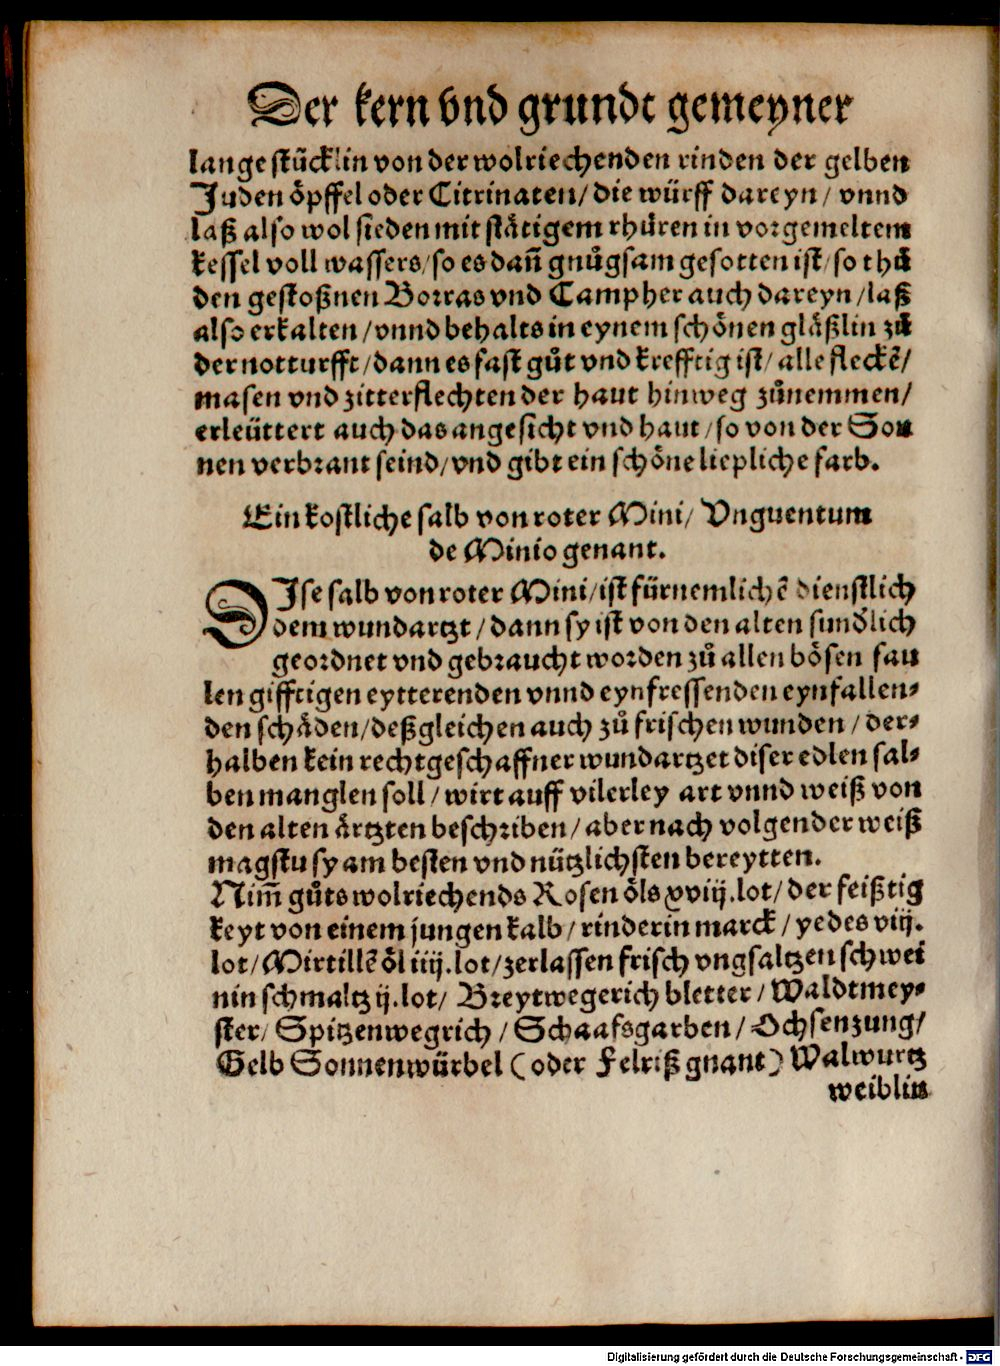 Der kern vnd grundt gemeyner
lange stücklin von der wolriechenden rinden der gelben
Juden öpffel oder Citrinaten/ die würff dareyn/ vnnd
laß also wol sieden mit stätigem rhüren in vorgemeltem
kessel voll wassers/ so es dañ gnůgsam gesotten ist/ so thů
den gestoßnen Borras vnd Campher auch dareyn/ laß
also erkalten/ vnnd behalts in eynem schönen gläßlin zů
der notturfft/ dann es fast gůt vnd krefftig ist/ alle fleckẽ/
masen vnd zitterflechten der haut hinweg zůnemmen/
erleüttert auch das angesicht vnd haut/ so von der Son
nen verbrant seind/ vnd gibt ein schöne liepliche farb.
Ein kostliche salb von roter Mini/ Vnguentum
de Minio genant.
DIse salb von roter Mini/ ist fürnemlichẽ dienstlich
dem wundartzt/ dann sy ist von den alten sundẽlich
geordnet vnd gebraucht worden zů allen bösen fau
len gifftigen eytterenden vnnd eynfressenden eynfallen⸗
den schäden/ deßgleichen auch zů frischen wunden/ der⸗
halben kein rechtgeschaffner wundartzet diser edlen sal⸗
ben manglen soll/ wirt auff vilerley art vnnd weiß von
den alten ärtzten beschriben/ aber nach volgender weiß
magstu sy am besten vnd nützlichsten bereytten.
Nim̃ gůts wolriechends Rosen öls xviij. lot/ der feißtig
keyt von einem jungen kalb/ rinderin marck/ yedes viij.
lot/ Mirtillẽ öl iiij. lot/ zerlassen frisch vngsaltzen schwei
nin schmaltz ij. lot/ Breytwegerich bletter/ Waldtmey⸗
ster/ Spitzenwegrich/ Schaafsgarben/ Ochsenzung/
Gelb Sonnenwürbel (oder Felriß gnant) Walwurtz
weiblin
Digitalisierung gefördert durch die Deutsche Forschungsgemeinschaft - DFG